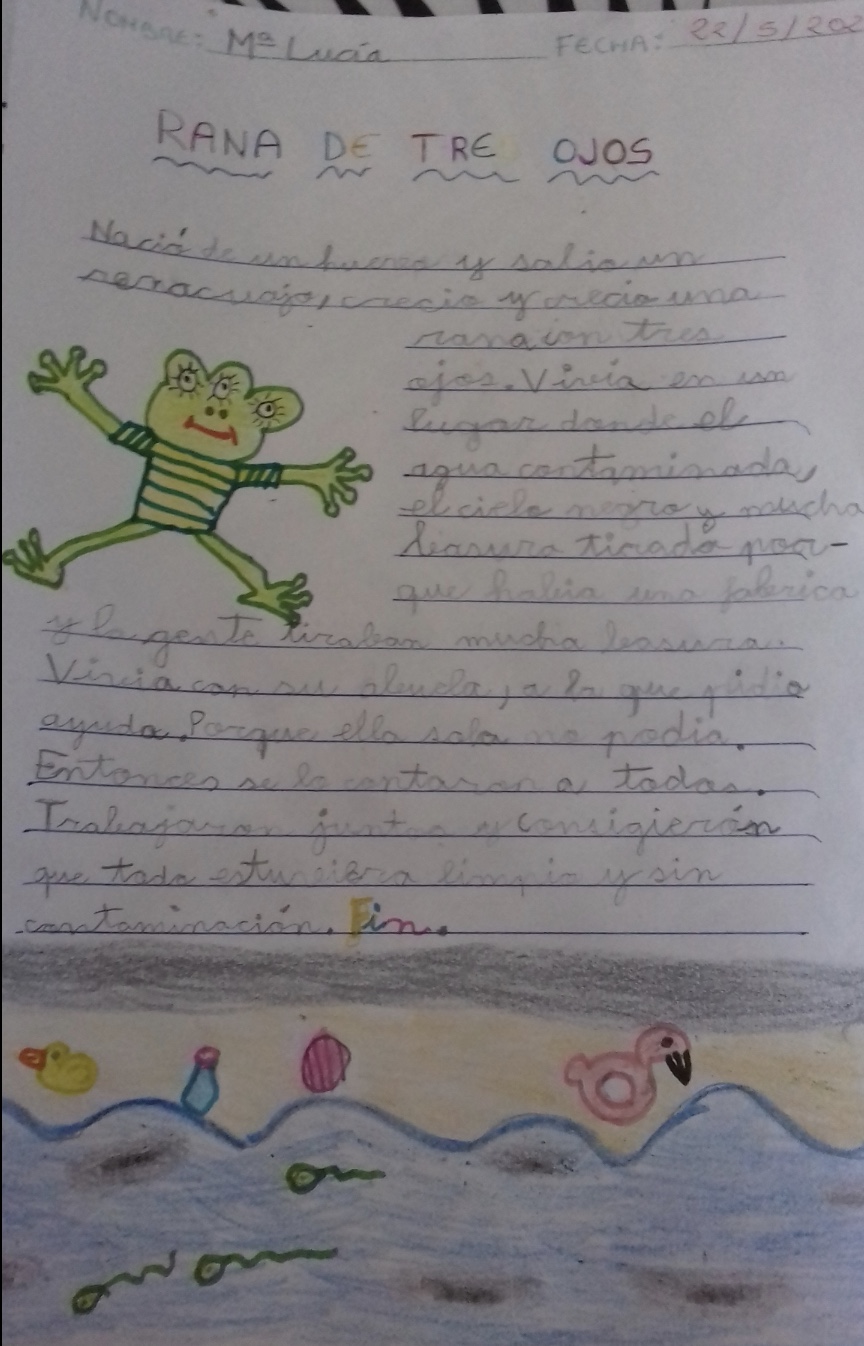 NOMBRE: Mª Lucía FECHA: 22/5/202
RANA DE TRE OJOS
Nació de un huevo y salio un
renacuajo, crecio y crecio una
rana con tres
ojos. Vivía en un
lugar donde el
agua contaminada,
el cielo negro y mucha
basura tirada por-
que habia una fabrica
y la gente tiraban mucha basura.
Vivia con su abuela, a la que pidio
ayuda. Porque ella sola no podia.
Entonces se lo contaron a todos.
Trabajaron juntos y consigierón
que todo estuviera limpio y sin
contaminación. Fin.